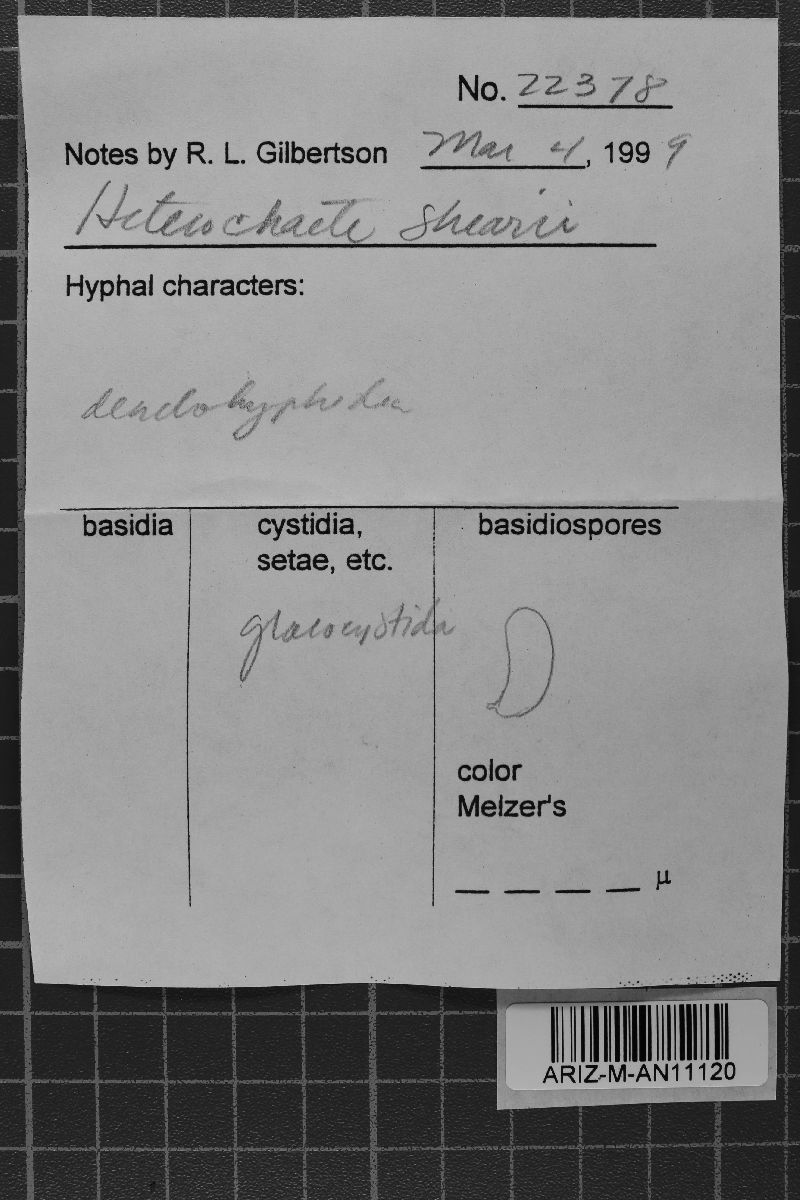 No. 22378
Notes by R. L. Gilbertson Mar 4, 1999
Heterochaete shearii
Hyphal characters:
dendohyphidia
basidia
cystidia,
setae, etc.
basidiospores
gloeocystidia
color
Melzer's
µ
ARIZ-M-AN11120